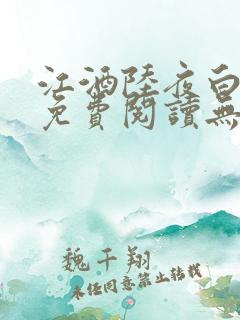 江酒陸夜白
免費閱讀無
魏千翔
未经同意禁止转载